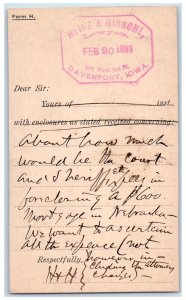 Form H.
HEINZ & HIRSCHL,
FEB 20 1889
DAVENPORT, IOWA.
Dear Sir:
Yours of inst.,
with enclosures as stated received concerning
About how much
would be the court
and sheriff fees in
foreclosing a $600.
Mortgage in Nebraska
We want to ascertain
all the expence (not
Respectfully, however in-
cluding the attorney
H & H charges)